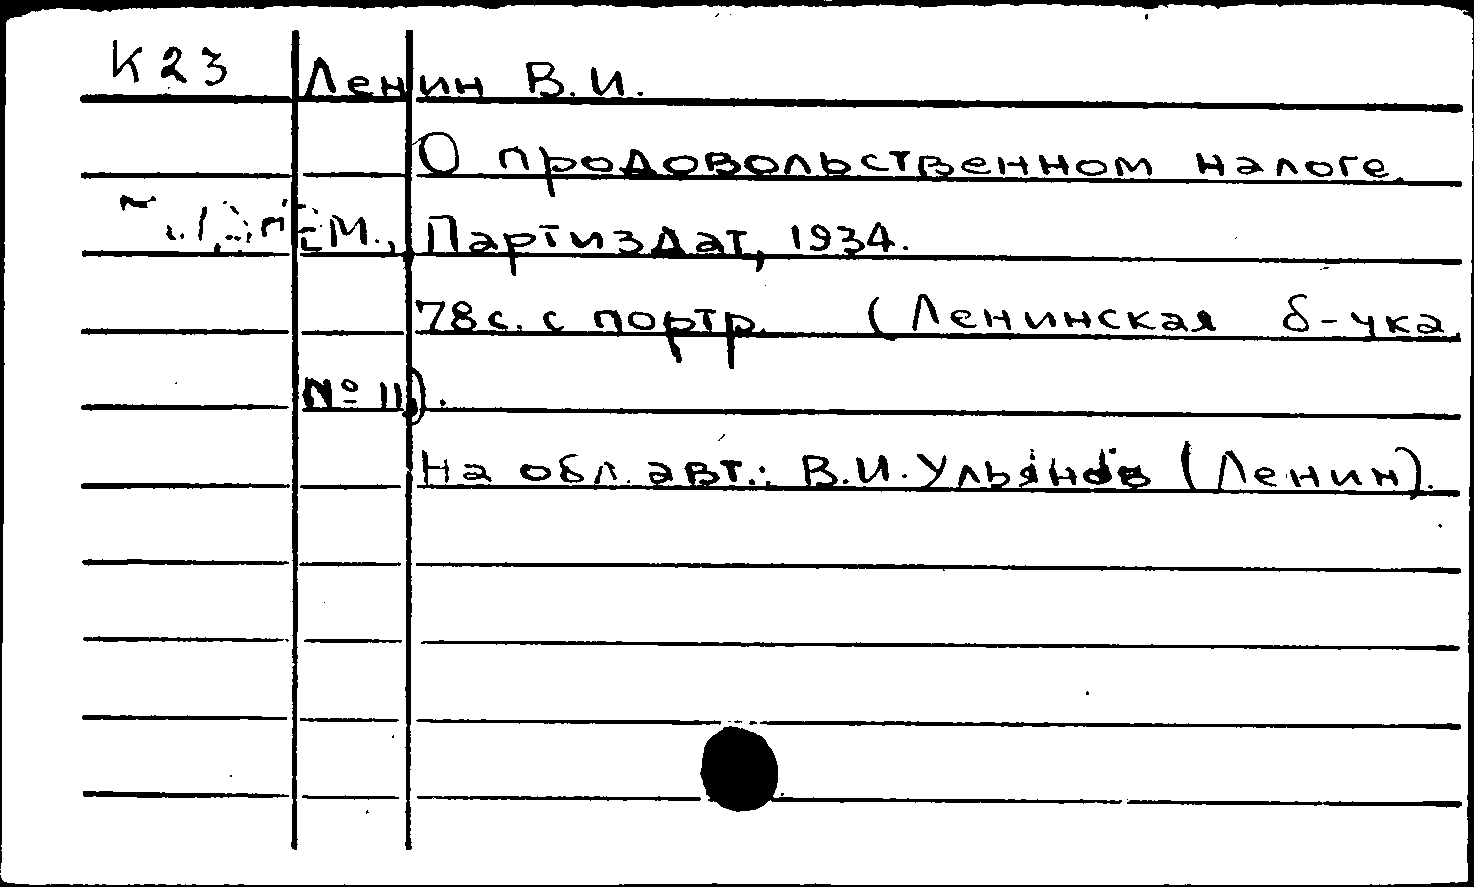 К23 Ленин В.И.
О продовольственном налоге.
М., Партиздат, 1934.
78с. с портр. (Ленинская б-чка
№ 11).
На обл. авт.: В.И. Ульянов (Ленин).